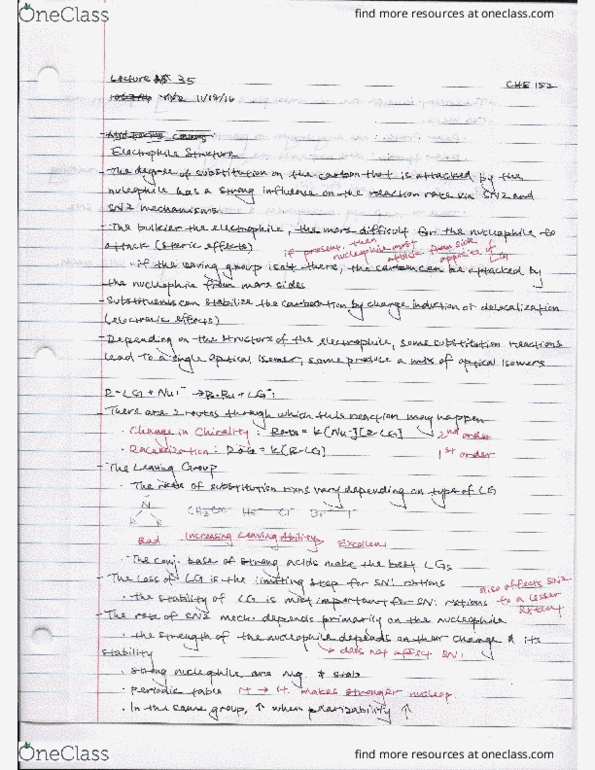 OneClass
find more resources at oneclass.com
Lecture 35
CHE 152
11/18/16
Electrophile Structure
- The degree of substitution on the carbon that is attacked by the
nucleophile has a strong influence on the reaction rate via SN2 and
SN2 mechanisms.
- The bulkier the electrophile, the more difficult for the nucleophile to
attack (steric effects)
if present, then
nucleophile must
attack from side
opposite of LG
· if the leaving group isn't there, the carbon can be attacked by
the nucleophile from more sides
- Substituents can stabilize the carbocation by charge induction or delocalization
(electronic effects)
- Depending on the structure of the electrophile, some substitution reactions
lead to a single optical isomer, some produce a mix of optical isomers
R-LG + Nu:⁻ → R-Nu + LG⁻
- There are 2 routes through which this reaction may happen
· Change in Chirality : Rate = K[Nu:⁻][R-LG] 2nd order
· Racemization : Rate = K[R-LG] 1st order
- The Leaving Group
· The rate of substitution rxns vary depending on type of LG
N
R R
Bad Increasing Leaving Ability Excellent
· The conj. base of strong acids make the best LGs
- The loss of LG is the limiting step for SN1 rxtions
· the stability of LG is most important for SN1 rxtions
also affects SN2
to a lesser
extent
- The rate of SN2 mech. depends primarily on the nucleophile
· the strength of the nucleophile depends on their charge & its
stability
does not affect SN1
· strong nucleophile are neg. & stab
· periodic table makes stronger nucleop.
· In the same group, ↑ when polarizability ↑
OneClass
find more resources at oneclass.com